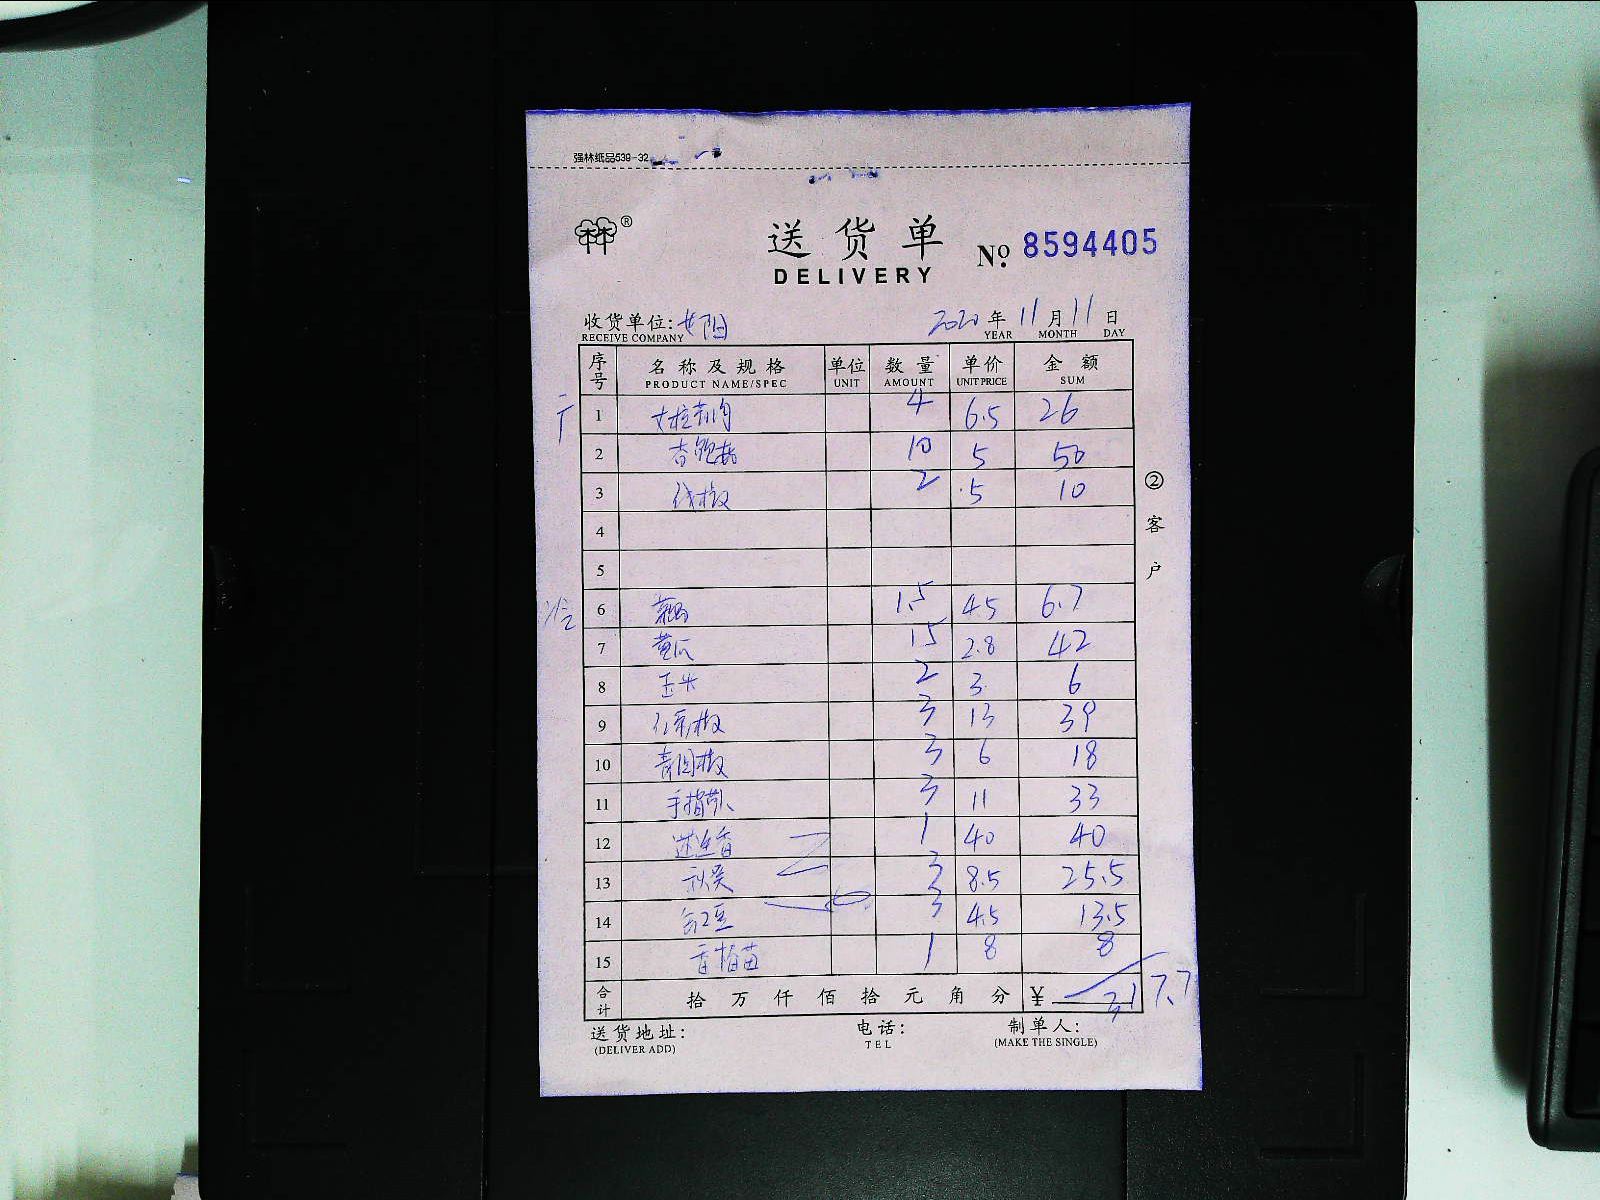 强林纸品539-32
®
送货单
DELIVERY
No. 8594405
收货单位:
2020年11月11日
RECEIVE COMPANY YEAR MONTH DAY
序号 名称及规格 单位 数量 单价 金额
PRODUCT NAME/SPEC UNIT AMOUNT UNIT PRICE SUM
1 4 6.5 26
2 杏鲍菇 10 5 50
3 线椒 2 5 10
4
5
6 1.5 4.5 6.7
7 黄瓜 15 2.8 42
8 2 3 6
9 红彩椒 3 13 39
10 青圆椒 3 6 18
11 手指 3 11 33
12 迷迭香 1 40 40
13 秋葵 3 8.5 25.5
14 3 4.5 13.5
15 苗 1 8 8
合计 拾万仟佰拾元角分 ¥ 317.7
②客户
送货地址: 电话: 制单人:
(DELIVER ADD) TEL (MAKE THE SINGLE)